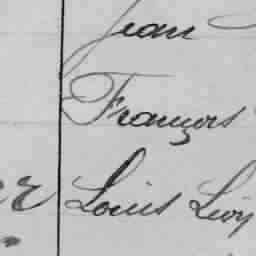 Jean
François
Louis Léon